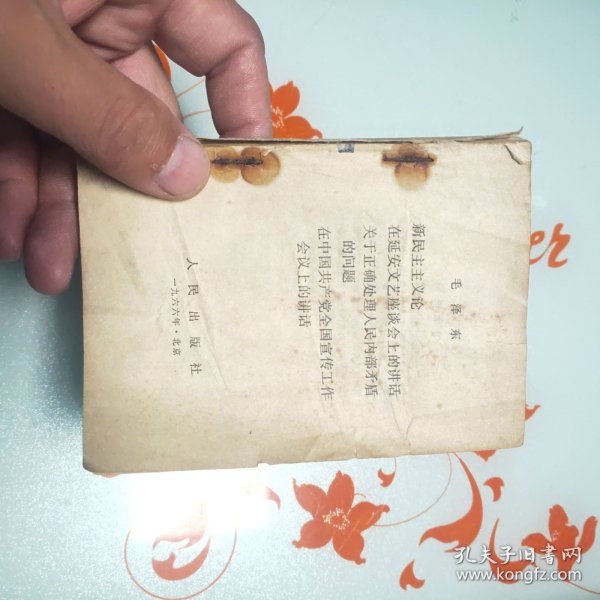 毛泽东
新民主主义论
在延安文艺座谈会上的讲话
关于正确处理人民内部矛盾
的问题
在中国共产党全国宣传工作
会议上的讲话
人民出版社
一九六六年·北京
孔夫子旧书网
www.kongfz.com